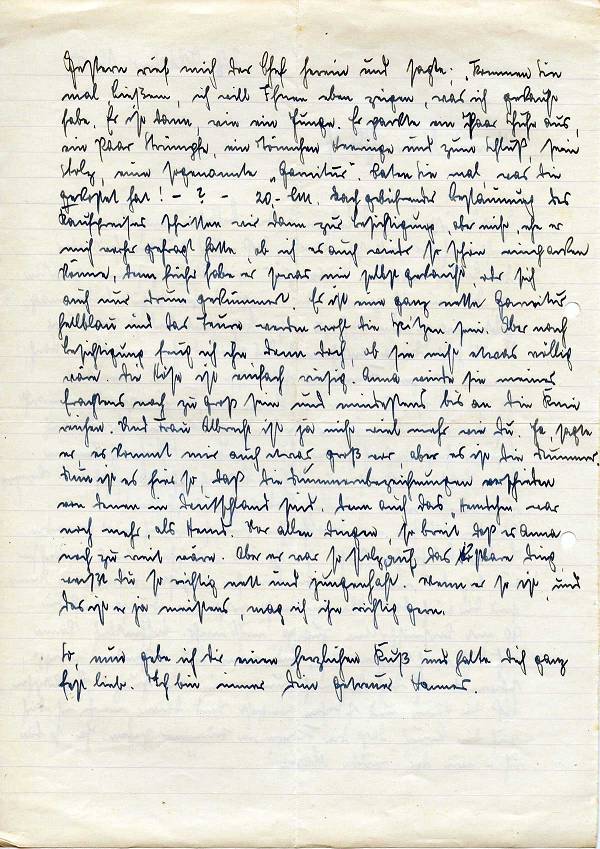 Gestern rief mich der Chef herein und sagte: „Kommen Sie
mal, ich will Ihnen eben zeigen, was ich gekauft
habe. Er ist dann wie ein Junge. Er packte ein Paar Schuhe aus,
ein Paar Strümpfe, ein Tönnchen Heringe und zum Schluß, sein
Stolz, eine sogenannte „Garnitur“. Raten Sie mal, was die
gekostet hat! – ? – 20,- RM. Nach gebührender Bestaunung des
Kaufpreises schritten wir dann zur Besichtigung, aber nicht, ehe er
mich vorher gefragt hatte, ob ich es auch wieder so schön einpacken
könne, denn bisher habe er sowas nie selbst gekauft, oder sich
auch nur drum gekümmert. Er ist eine ganz nette Garnitur
hellblau und das Teure werden wohl die Spitzen sein. Aber nach
Besichtigung frug ich ihn dann doch, ob sie nicht etwas völlig
wäre. Die Hose ist einfach riesig. Anna würde sie meines
Erachtens noch zu groß sein und mindestens bis an die Knie
reichen. Und Frau Albrecht ist ja nicht viel mehr wie Du. Ja, sagte
er es kommt mir auch etwas groß vor, aber es ist die Nummer.
Nun ist es hier so, daß die Nummernbezeichnungen verschieden
von denen in Deutschland sind. Denn auch das Hemdchen war
noch mehr, als Hemd. Vor allen Dingen, so breit daß es Anna
noch zu weit wäre. Aber er war so stolz auf das kostbare Ding,
weißt Du so richtig nett und jungenhaft. Wenn er so ist, und
das ist er ja meistens, mag ich ihn richtig gern.
So, nun gebe ich Dir einen herzlichen Kuß und halte Dich ganz
fest lieb. Ich bin immer Dein getreuer Hannes.